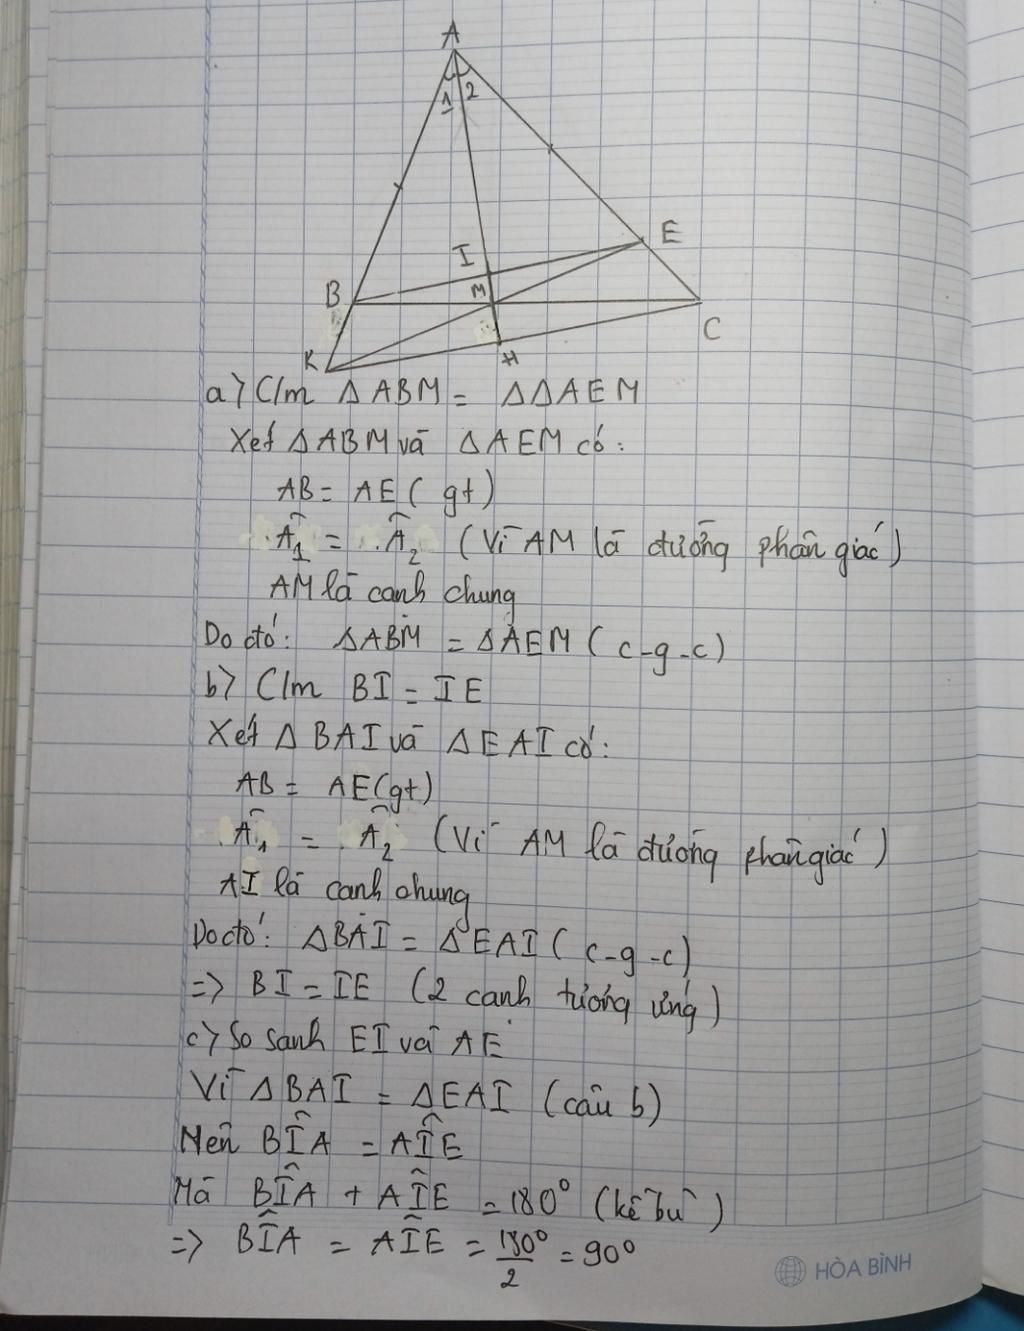 A
1 2
E
I
B
M
C
K
H
a) C/m ΔABM = ΔΔAEM
Xét ΔABM và ΔAEM có:
AB = AE (gt)
Â₁ = Â₂ (Vì AM là đường phân giác)
AM là cạnh chung
Do đó: ΔABM = ΔAEM (c-g-c)
b) C/m BI = IE
Xét ΔBAI và ΔEAI có:
AB = AE (gt)
Â₁ = Â₂ (Vì AM là đường phân giác)
AI là cạnh chung
Do đó: ΔBAI = ΔEAI (c-g-c)
=> BI = IE (2 cạnh tương ứng)
c) So sánh EI và AE
Vì ΔBAI = ΔEAI (câu b)
Nên BÎA = AÎE
Mà BÎA + AÎE = 180° (kề bù)
=> BÎA = AÎE = 180°/2 = 90°
HÒA BÌNH